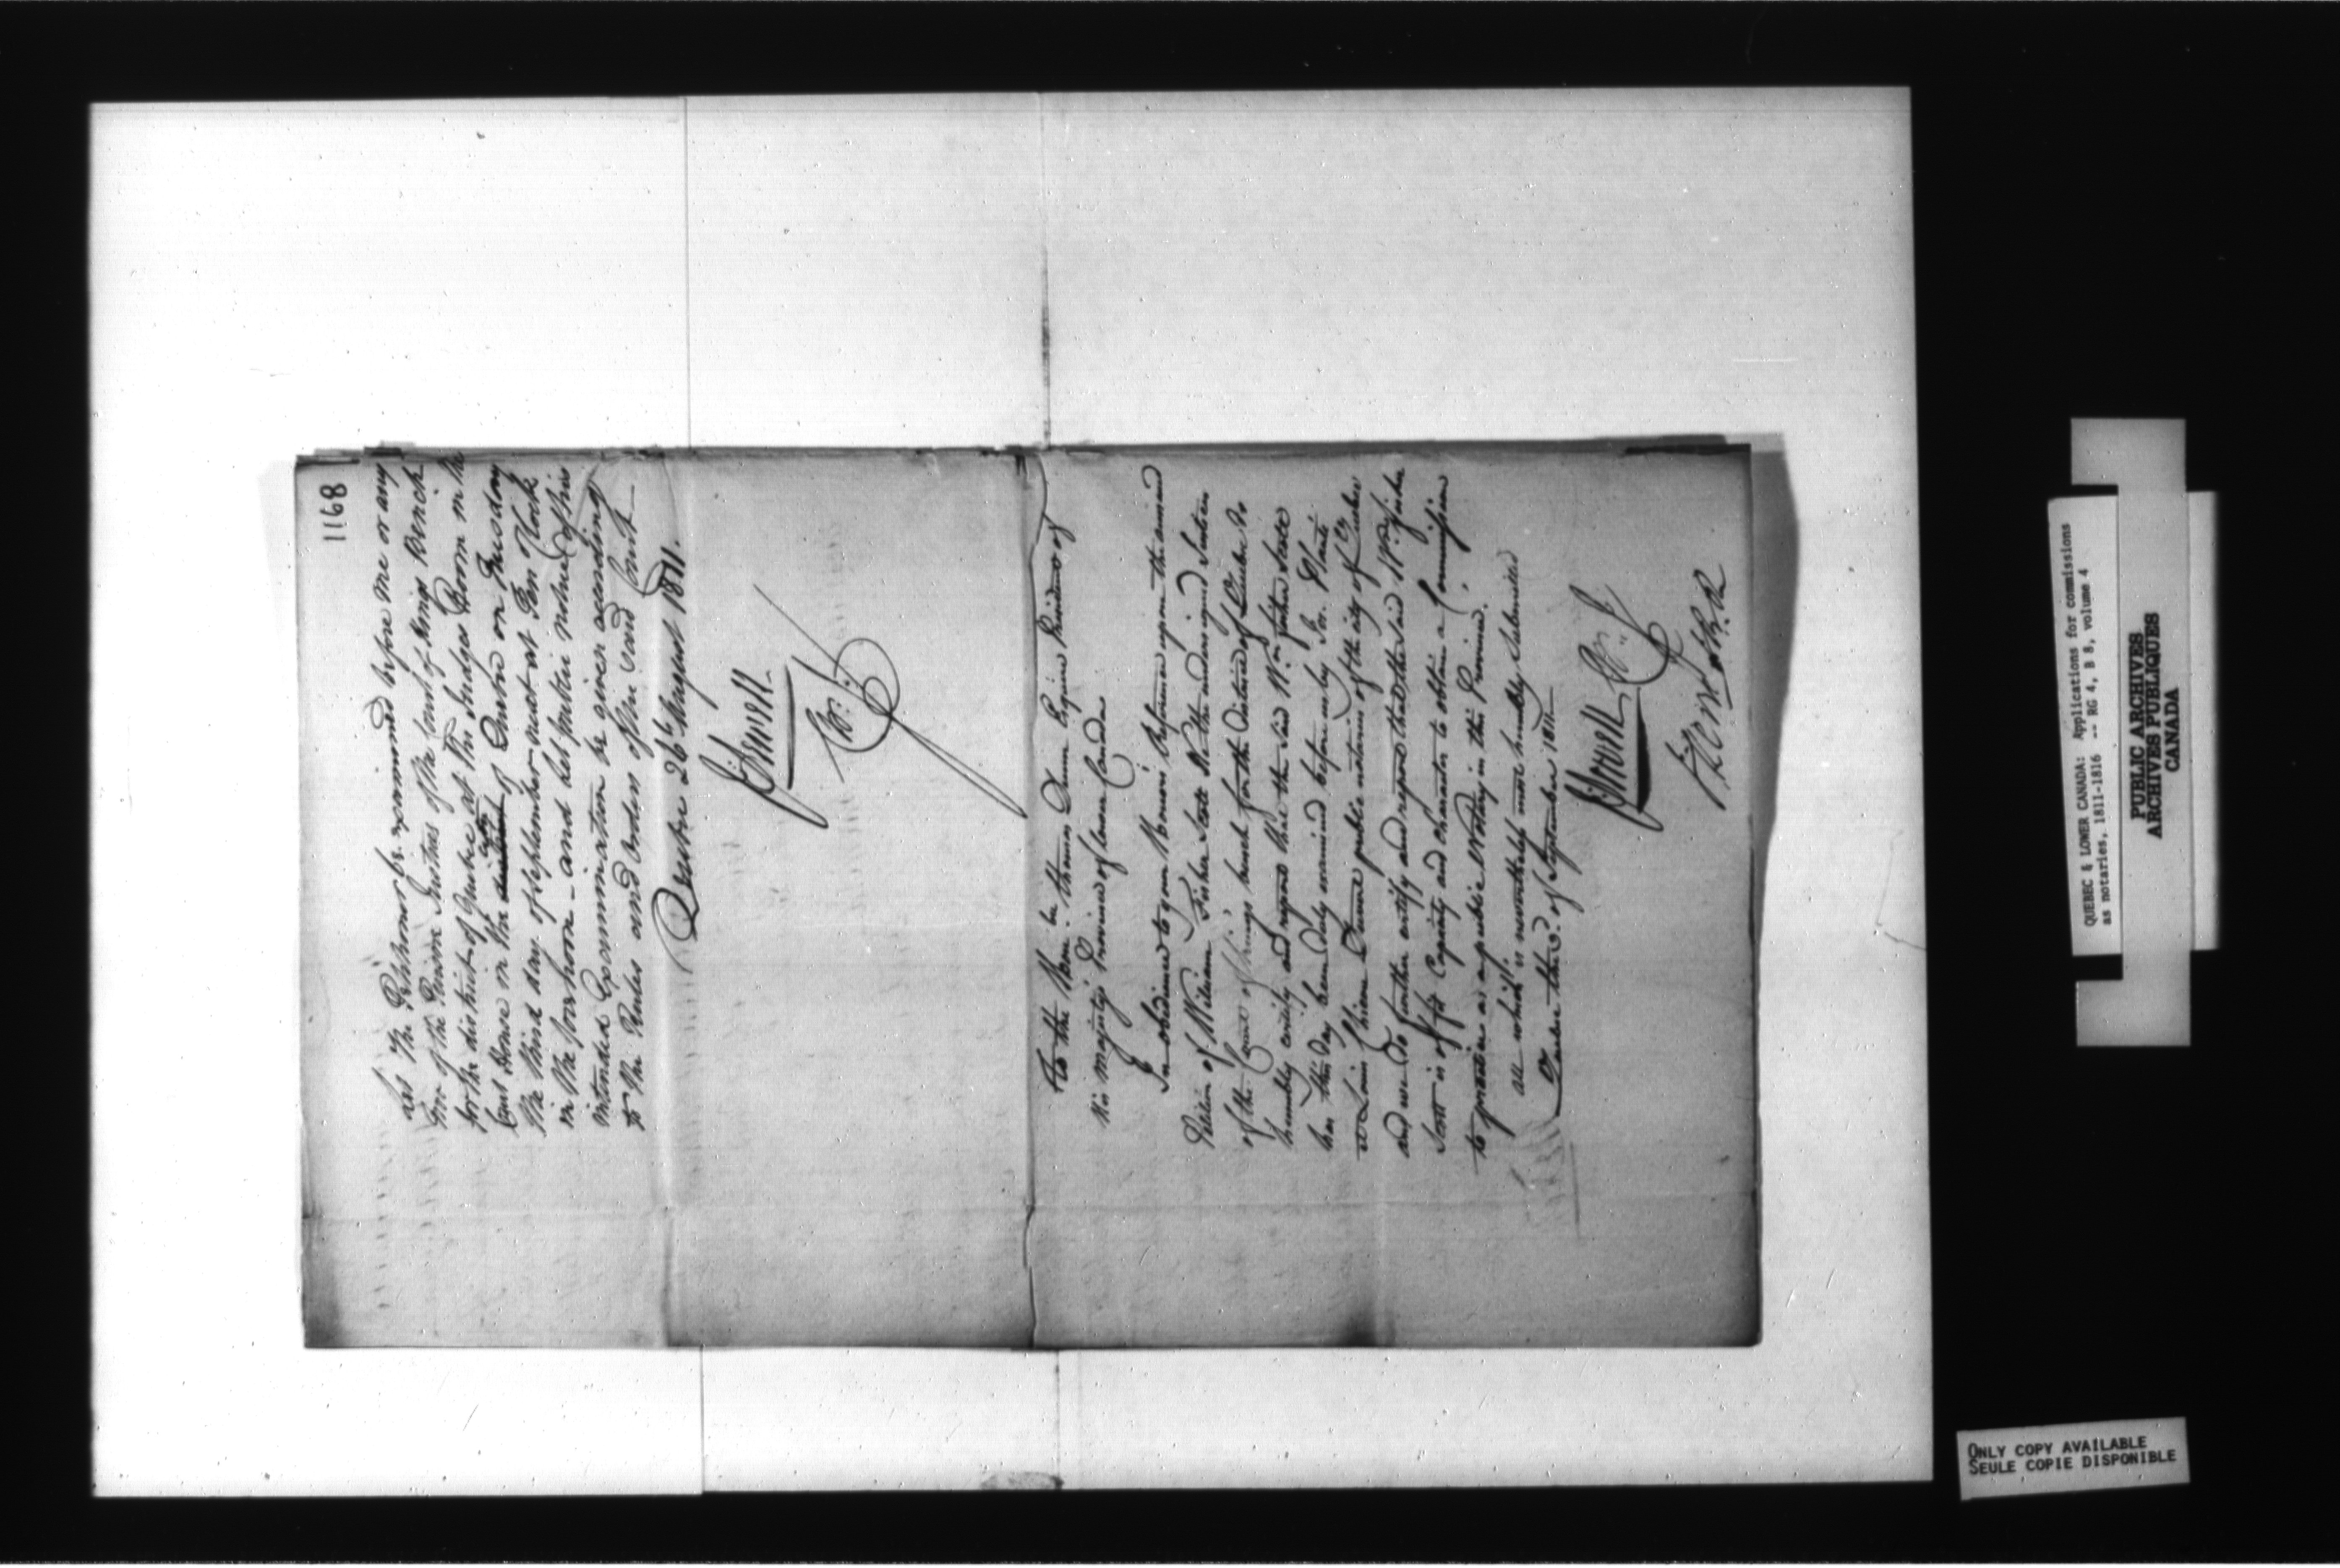 1168
Let the Petitioner be examined before me or any
one of the Puisne Justices of the Court of Kings Bench
for the district of Quebec at the Judges Room in the
Court House in the district city of Quebec on Tuesday
the third day of September next at Ten o'Clock
in the forenoon - and let public notice of his
intended Examination be given according
to the Rules and Orders of the said Court -
Quebec 26th August 1811.
J: Sewell.
To the Hon: ble Thomas Dunn Esquire President of
His majesty's Province of Lower Canada
In obedience to your Honors Reference upon the annexed
Petition of William Fisher Scott We the undersigned Justices
of the Court of Kings bench for the District of Quebec Do
humbly certify and report that the said Wm. fisher Scott
has this day been duly examined before us by Jos. Planté
& Louis public notaries of the city of Quebec
and we Do further certify and report that the said Wm. fisher
Scott is of fit Capacity and Character to obtain a Commission
to practice as a public Notary in this Province.
all which is nevertheless most humbly Submitted
Quebec the 3d. of September 1811.
J: Sewell
QUEBEC & LOWER CANADA: Applications for commissions
as notaries, 1811-1816 -- RG 4, B 8, volume 4
PUBLIC ARCHIVES
ARCHIVES PUBLIQUES
CANADA
ONLY COPY AVAILABLE
SEULE COPIE DISPONIBLE